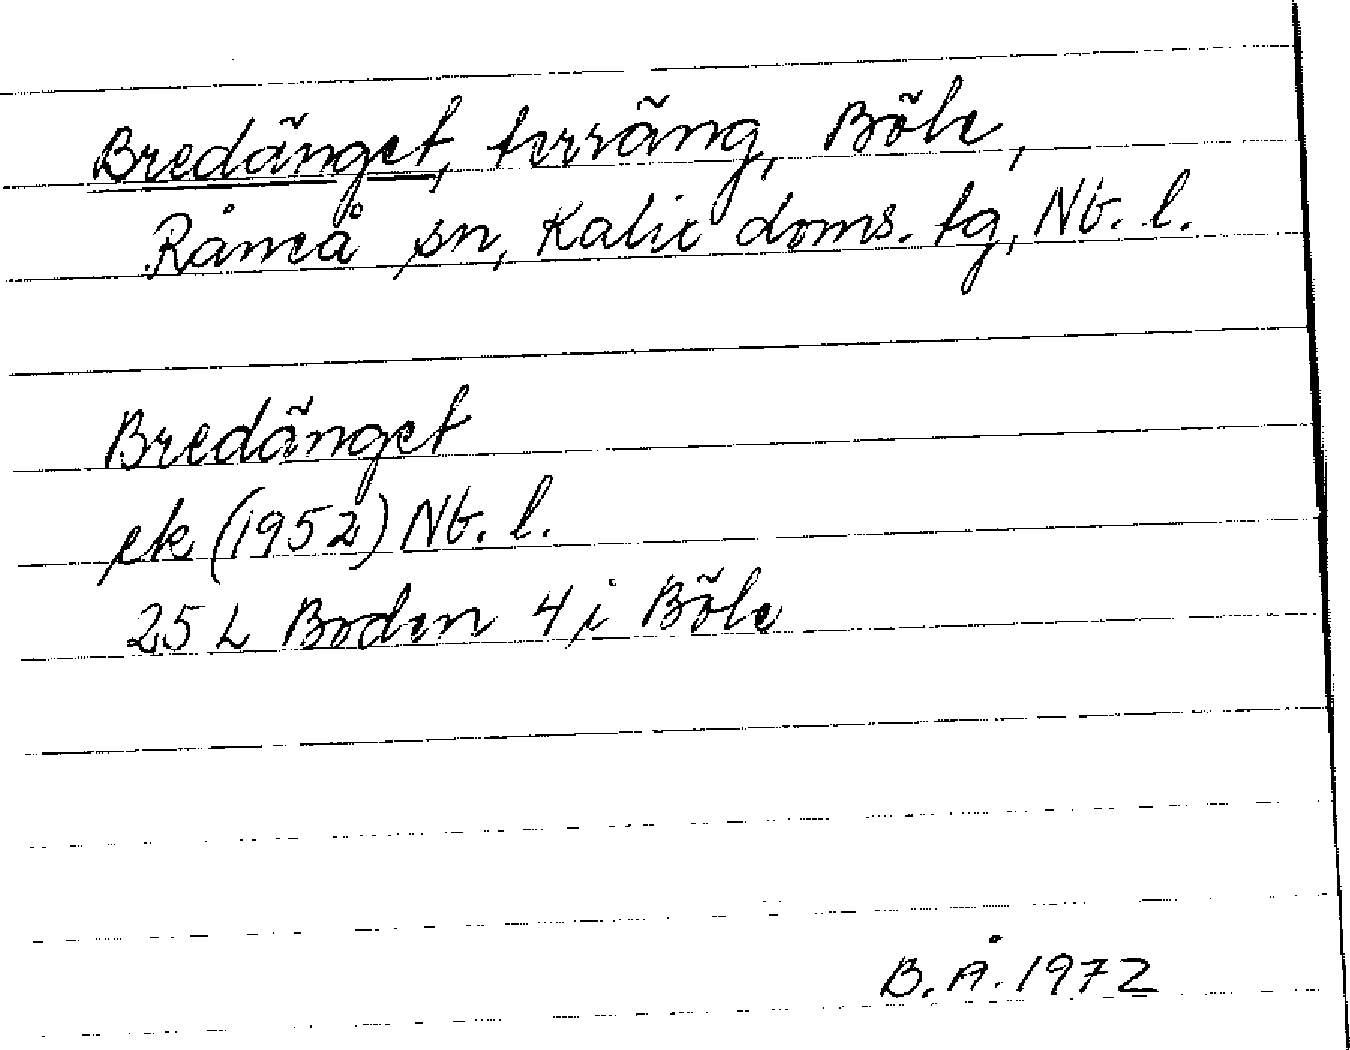 Bredänget, terräng, Böle,
Råneå sn, Kalix doms. tg, Nb. l.
Bredänget
ek (1952) Nb. l.
25 L Boden 4 i Böle
B.Å. 1972